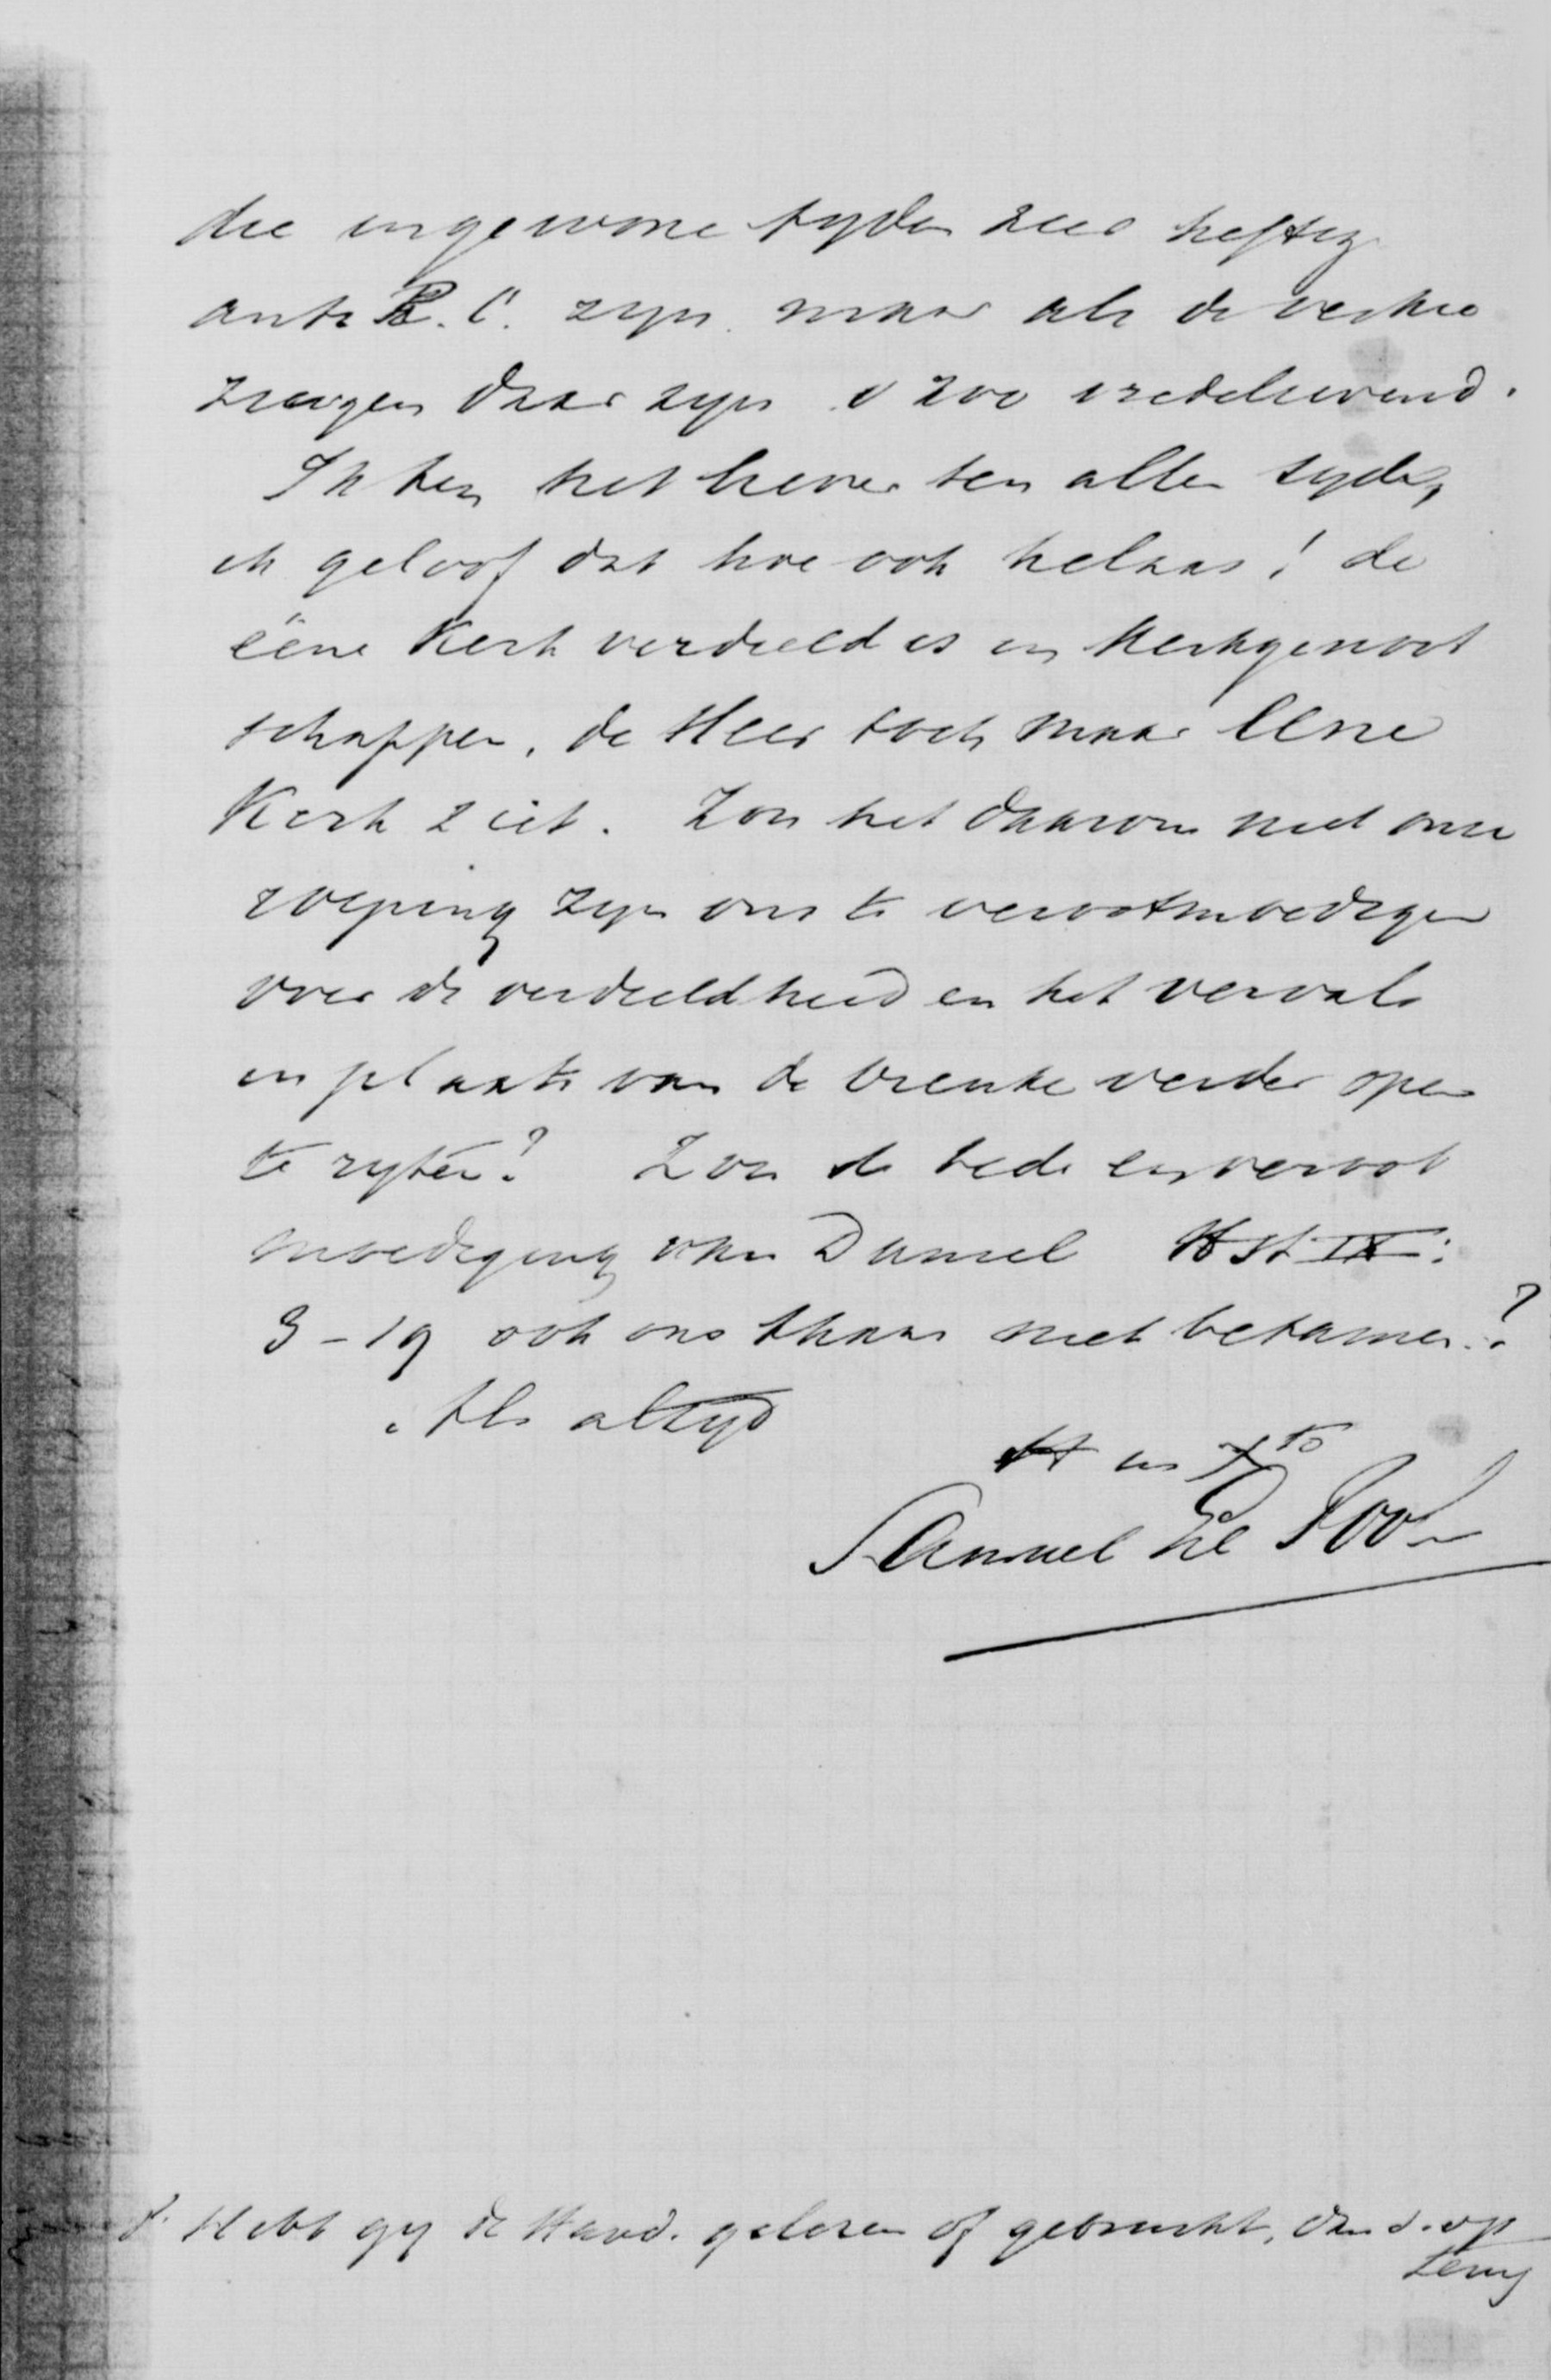 die in gewone tyden zeer heftig
anti R. C. zyn maar als de verkie
zingen daar zyn o zoo vredelievend.
Ik ben het liever ten allen tyde,
ik geloof dat hoe ook helaas! de
ééne Kerk verdeeld is in Kerkgenoot
schappen, de Heer toch maar Eéne
Kerk ziet. Zou het daarom niet onze
roeping zyn ons te verootmoedigen
over de verdeeldheid en het verval
in plaats van de breuke verder open
te ryten? Zou de bede en veroot
moediging van Daniel Hst IX:
3-19 ook ons thans niet betamen?
Als altyd
Samuel
Hebt gy de Hand. gelezen of gebruikt, dan s. op
terug